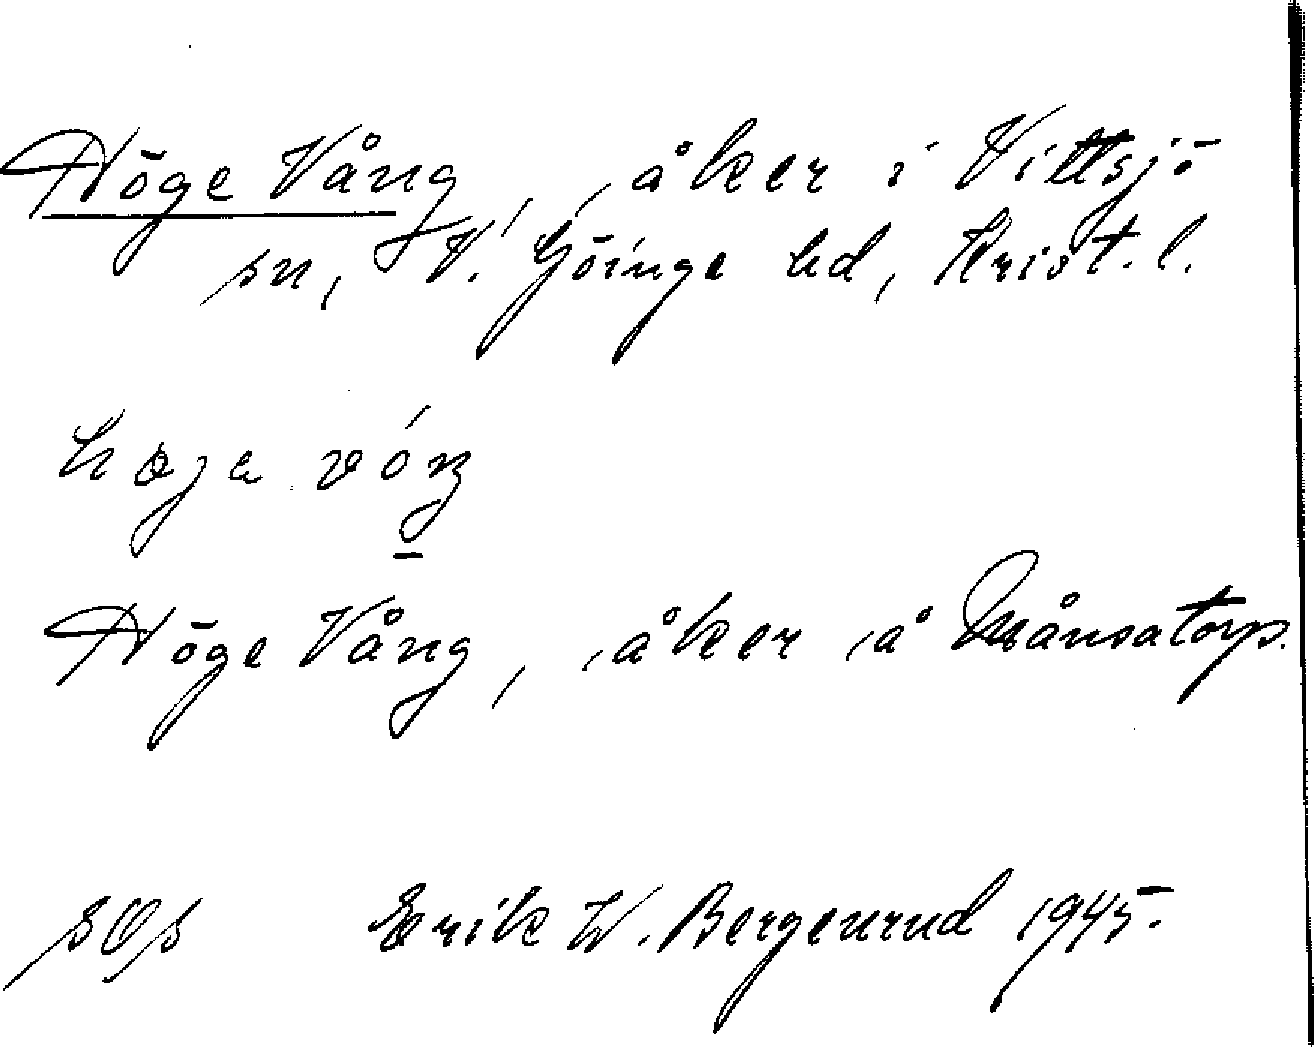 Höge Vång, åker i Vittsjö
sn, V. Göinge hd, Krist. l.
høja vóŋ
Höge Vång, åker å Månsatorp.
Erik W. Bergenrud 1945.